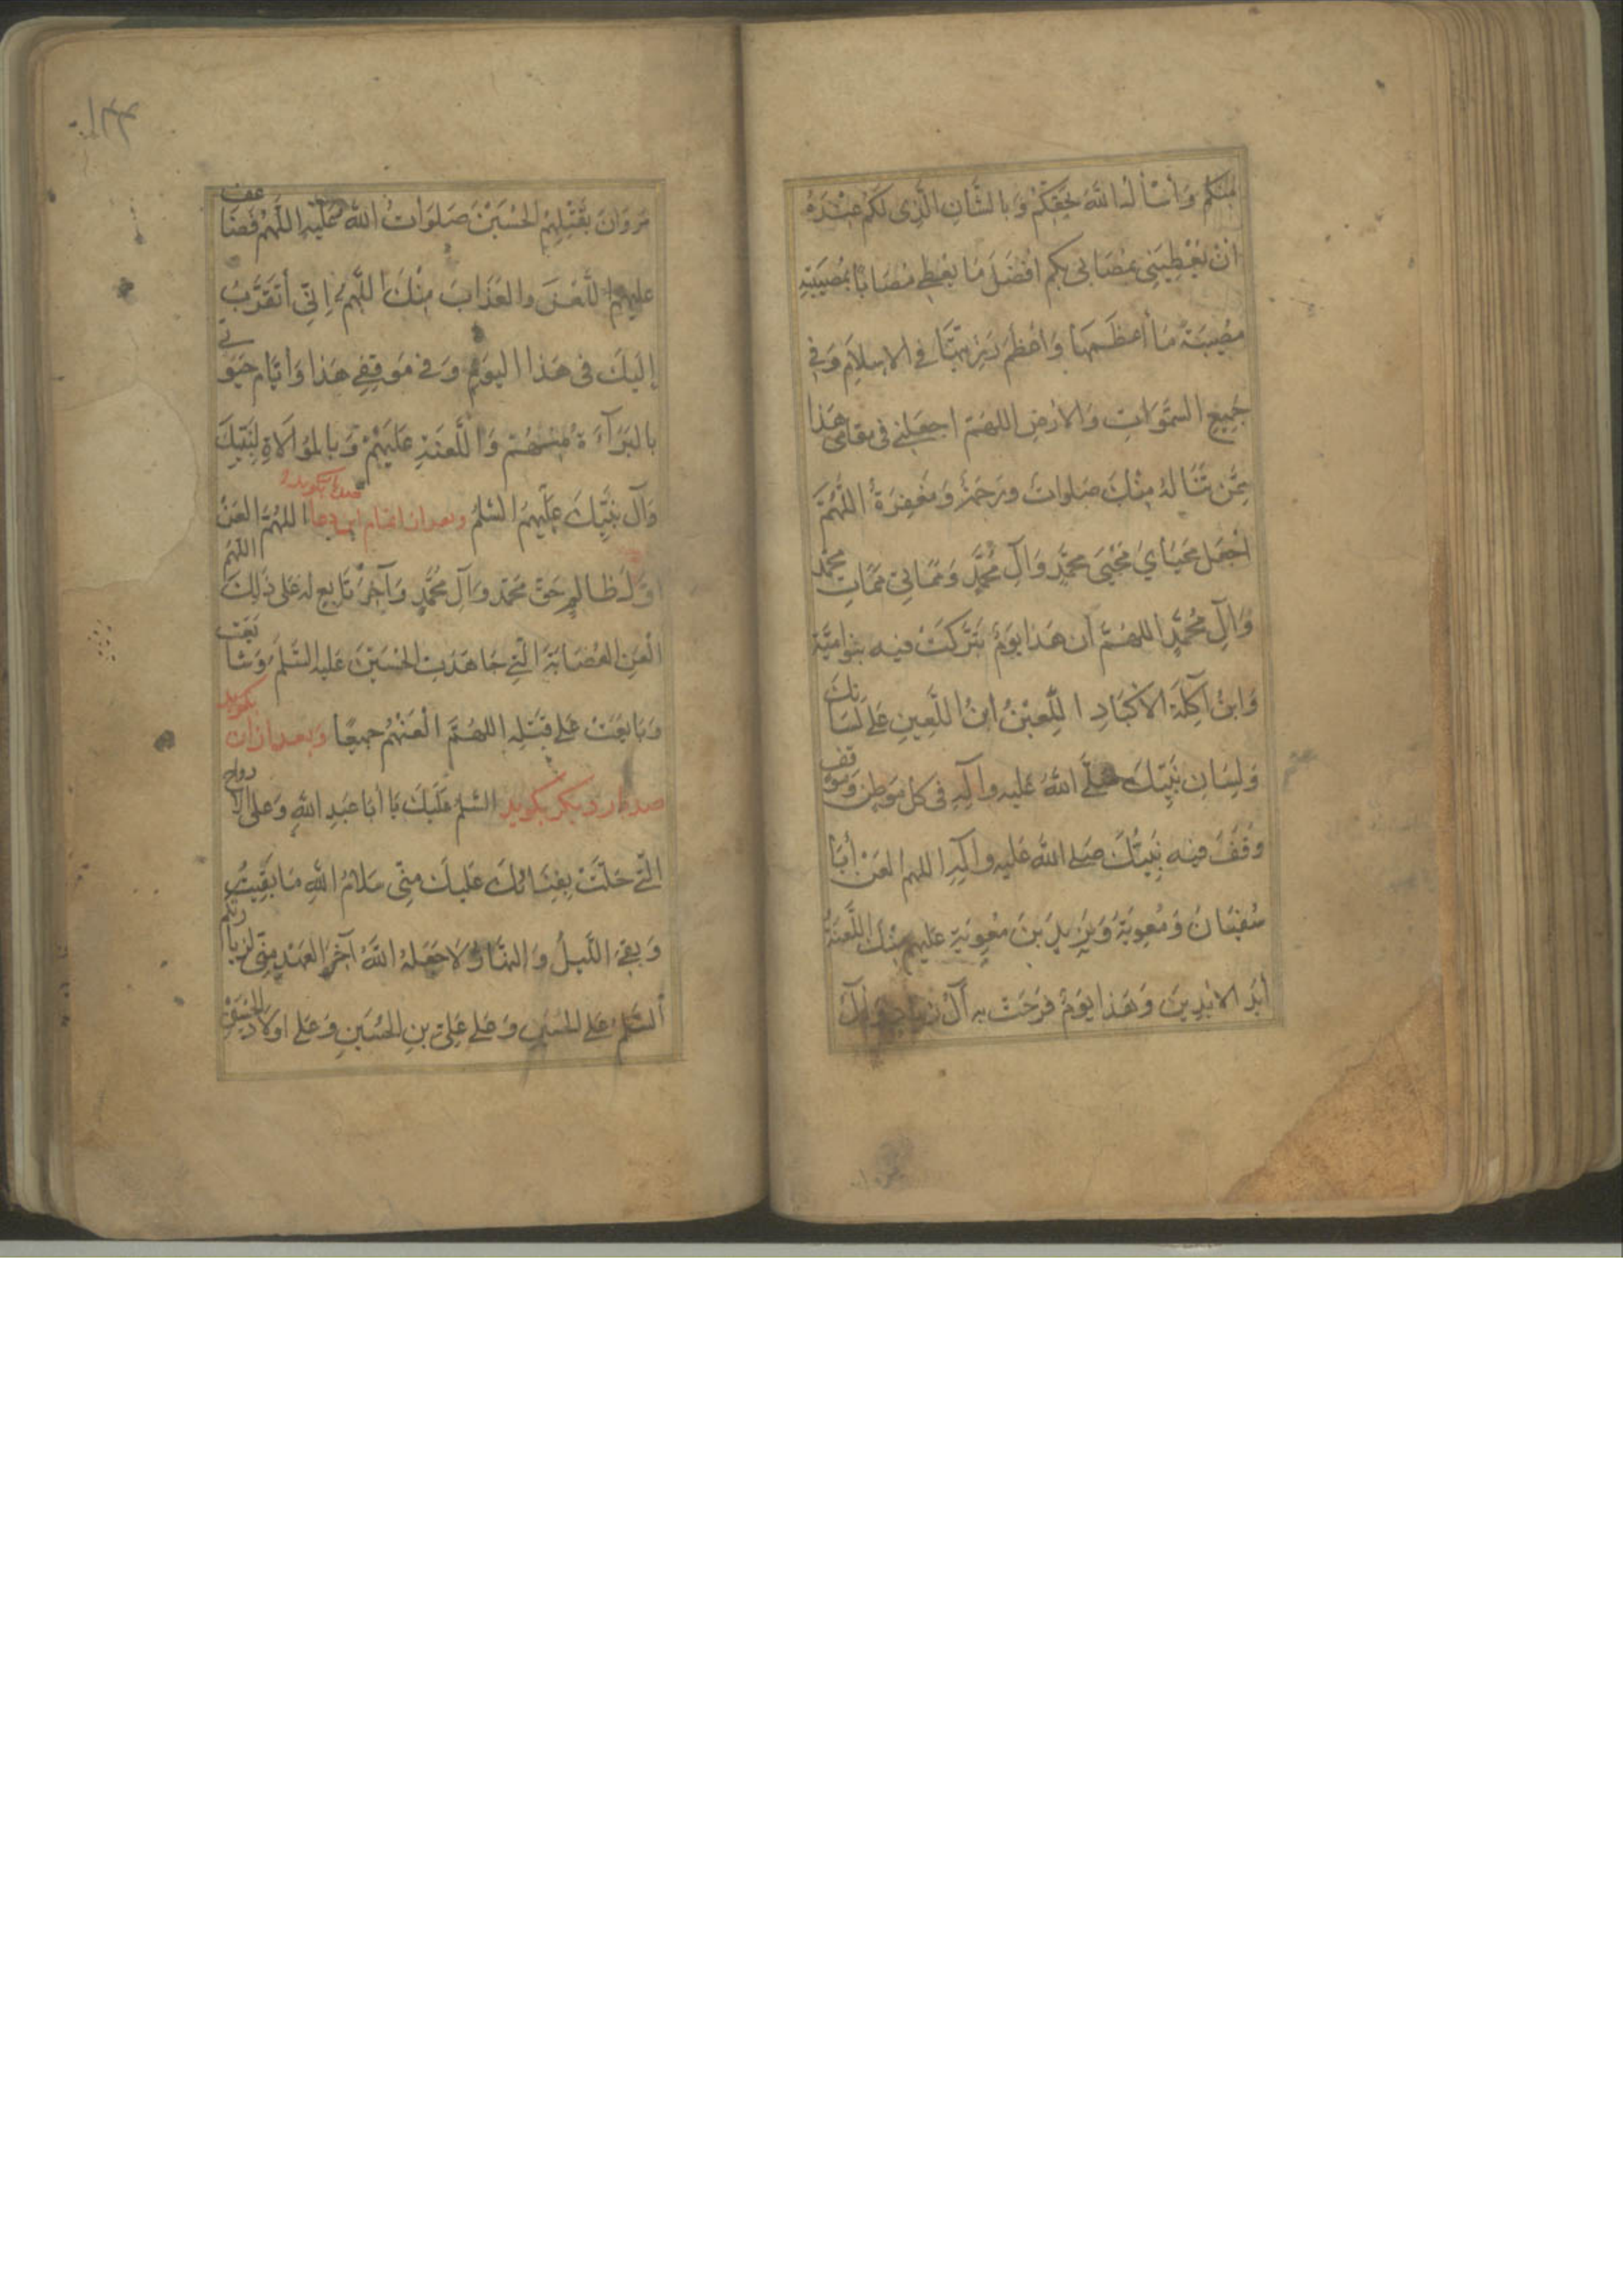 مِنكُم وَأَسْأَلُ اللهَ بِحَقِّكُمْ وَبِالشَّأنِ الَّذِي لَكُم عِنْدَهُ
أنْ يُعْطِيَنِي بِمُصَابِي بِكُم أفْضَلَ مَا يُعْطِي مُصَابًا بِمُصِيبَتِهِ
مُصِيبَةً مَا أعظَمَهَا وَأعْظَمَ رَزِيَّتَهَا فِي الاسلَامِ وَفِي
جَمِيعِ السَّمَوَاتِ وَالارْضِ اللهُمَّ اجعَلْنِي فِي مَقَامِي هَذَا
مِمَّن تَنَالُهُ مِنْكَ صَلَوَاتٌ ورَحمَةٌ وَمَغفِرَةٌ اللَّهُمَّ
اجْعَل مَحْيَايَ مَحْيَى مُحَمَّدٍ وَآلِ مُحَمَّدٍ وَمَمَاتِي مَمَاتَ مُحَمَّد
وَآلِ مُحَمَّدٍ اللهُمَّ ان هَذا يَوْمٌ تَبَرَّكَتْ فِيهِ بَنُو امَيَّة
وَابنُ آكِلَةِ الاكْبَادِ اللَّعِيْنُ ابنُ اللَّعِينِ عَلى لِسَانِكَ
وَلِسَانِ نَبِيِّكَ صَلَّى اللهُ عَلَيهِ وَآلِهِ فِي كُلِّ مَوطِنٍ وَمَوْقِفٍ
وَقَفَ فِيهِ نَبِيُّكَ صَلى اللهُ عَلَيهِ وآلِهِ اللهم العَنْ أبَا
سُفيَانَ وَمُعوِيَةَ وَيَزِيدَ بنَ مُعوِيَةَ عَلَيهِم مِنْكَ اللَّعنَةُ
أبَدَ الابِدِينَ وَهَذا يَوْمٌ فَرَحَتْ بِهِ آلُ زِيَادٍ وَآلُ
مَروَانَ بِقَتْلِهِمُ الحُسَيْنَ صَلَوَاتُ اللهِ عَلَيهِ اللَّهُمَّ فَضَاعِف
عَلَيهِمُ اللَّعْنَ والعَذَابَ مِنْكَ اللَّهُمَّ إِنِّي أتَقَرَّبُ
إلَيكَ فِى هَذا اليَومِ وَفِي مَوقِفِي هَذا وَأيَّامِ حَيَوتِي
بِالبَرَآءَةِ مِنهُم وَاللَّعنَةِ عَلَيْهِمْ وَبِالمُوَالَاةِ لِنَبِيِّكَ
وَآلِ نَبِيِّكَ عَلَيهِمُ السَّلمُ وبعد از اتمام این دعا صدبار بگوید اللهُمَّ العَنْ
اوَّلَ ظَالِمٍ ظَلَمَ حَقَّ مُحَمَّدٍ وَآلِ مُحَمَّدٍ وَآخِرَ تَابِعٍ لَهُ عَلَى ذَلِكَ اللهُمَّ
الْعَنِ العِصَابَةَ الَّتِي جَاهَدَتِ الحُسَيْنَ عَلَيهِ السَّلمُ وَشَايَعَت
وَبَايَعَتْ عَلى قَتْلِهِ اللهُمَّ الْعَنْهُم جَمِيعًا وبعد از آن بگوید
صدبار دیکر بگوید السَّلمُ عَلَيكَ يَا أبَا عَبدِ اللهِ وَعَلَى الارْوَاحِ
الَّتِي حَلَّتْ بِفِنَائِكَ عَلَيكَ مِنِّي سَلَامُ اللهِ مَا بَقِيتُ
وَبَقِيَ اللَّيلُ وَالنَّهَارُ وَلَا جَعَلَهُ اللهُ آخِرَ العَهْدِ مِنِّي لِزِيَارَتِكُم
السَّلمُ عَلى الحُسَينِ وَعَلى عَلِيِّ بنِ الحُسَينِ وَعَلى اولَادِ الحُسَيْنِ